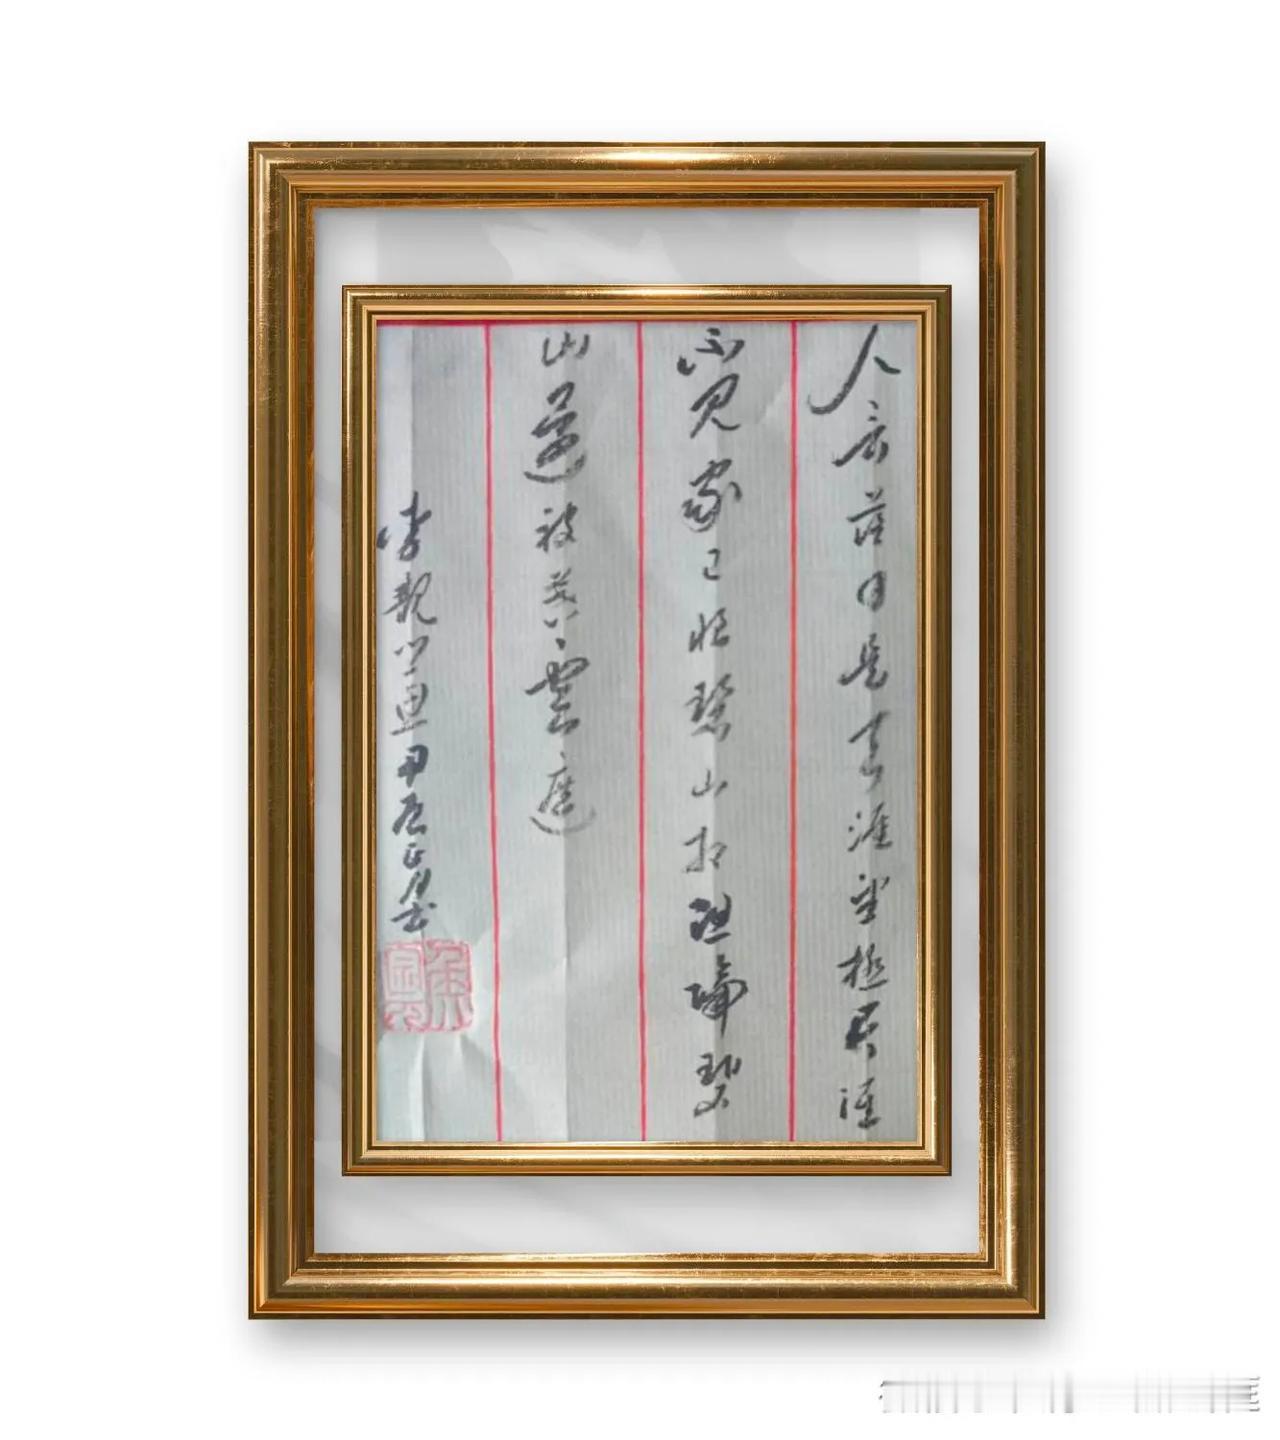 人言落日是天涯望極天涯
不見家已恨碧山相阻隔碧
山還被暮雲遮
李覯甲辰正月书